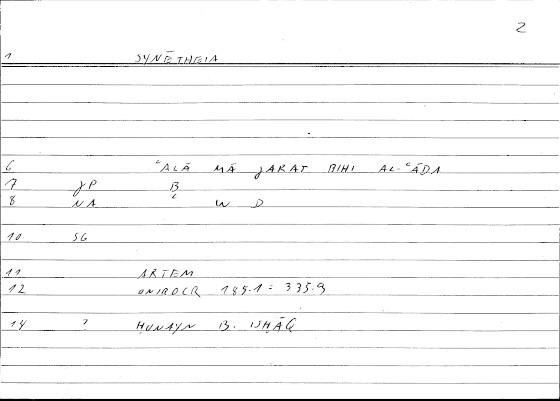 2
1 SYNĒTHEIA
6 ʿALĀ MĀ JARAT BIHI AL-ʿĀDA
7 JP B
8 NA L W D
10 SG
11 ARTEM
12 ONIROCR 185.1 = 335.9
14 ? HUNAYN B. ISHĀQ